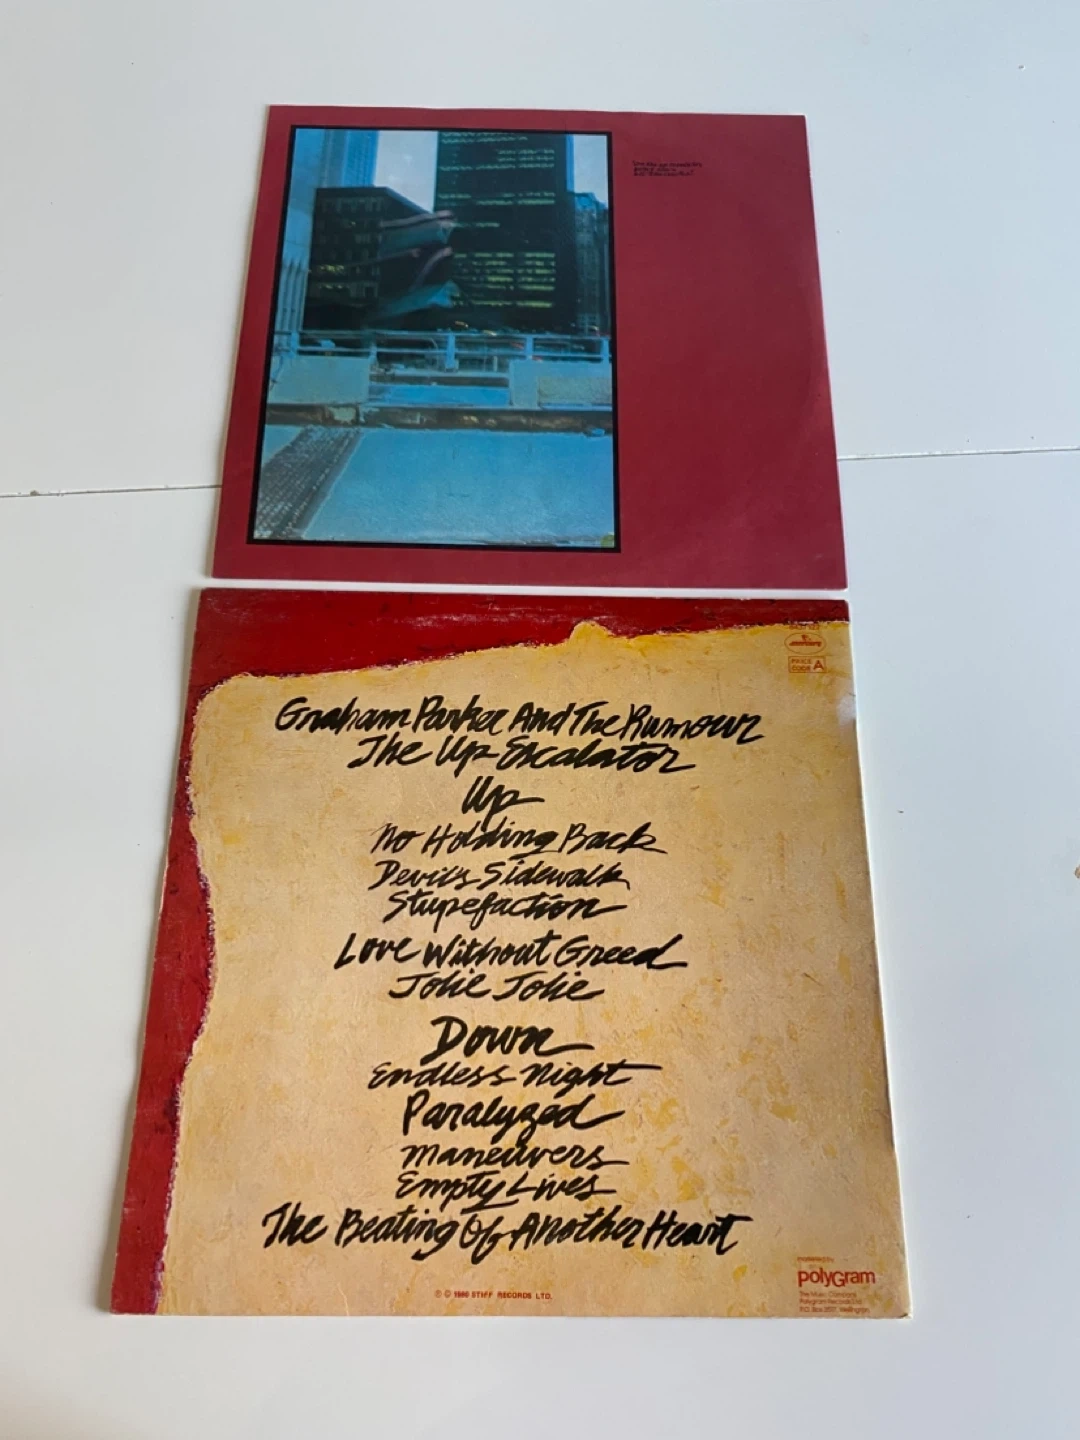 mercury
PRICE
CODE A
Graham Parker And The Rumour
The Up Escalator
Up
No Holding Back
Devil's Sidewalk
Stupefaction
Love Without Greed
Jolie Jolie
Down
Endless Night
Paralyzed
Maneuvers
Empty Lives
The Beating Of Another Heart
Marketed by
polyGram
The Music Company
Polygram Records Ltd
P.O. Box 3537, Wellington
℗ © 1980 STIFF RECORDS LTD.